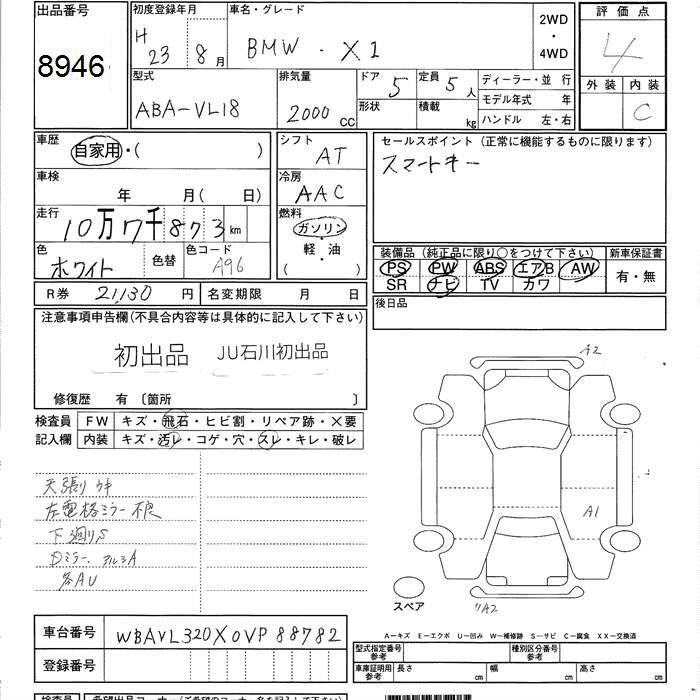 出品番号
8946
初度登録年月
H 23 8月
車名・グレード
BMW・X1
2WD
・
4WD
評価点
4
外装 内装
C
型式
ABA-VL18
排気量
2000 CC
ドア 5
形状
定員 5人
積載 kg
ディーラー・並 行
モデル年式 年
ハンドル 左・右
車歴
自家用・( )
車検
年 月( 日)
走行
10万7千873km
色
ホワイト
色替
色コード
A96
シフト
AT
冷房
AAC
燃料
ガソリン
・
軽・油
( )
セールスポイント (正常に機能するものに限ります)
スマートキー
装備品 (純正品に限り○をつけて下さい)
PS PW ABS エアB AW
SR ナビ TV カワ
新車保証書
有・無
R券 21,130 円
名変期限 月 日
後日品
注意事項申告欄(不具合内容等は具体的に記入して下さい)
初出品 JU石川初出品
修復歴 有 〔箇所 〕
検査員
記入欄
FW キズ・飛石・ヒビ割・リペア跡・X要
内装 キズ・汚レ・コゲ・穴・スレ・キレ・破レ
天張り ウキ
左電格ミラー不良
下廻りS
Dミラー、アルミA
各AU
A2
A1
A2
スペア
車台番号 WBAVL320X0VP88782
登録番号
A―キズ E―エクボ U―凹み W―補修跡 S―サビ C―腐食 XX―交換済
型式指定番号
参考
種別区分番号
参考
車庫証明用
参考
長さ cm 幅 cm 高さ cm
検査員
希望出品コーナー